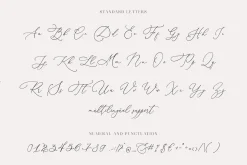 STANDARD LETTERS
Aa Bb Cc Dd Ee Ff Gg Hh Ii
Jj Kk Ll Mm Nn Oo Pp Qq
Rr Ss Tt Uu Vv Ww Xx Yy Zz
multilingual support
NUMERAL AND PUNCTUATION